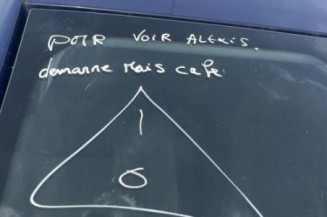 POUR VOIR ALEXIS.
demanne Mais cafe
1
0